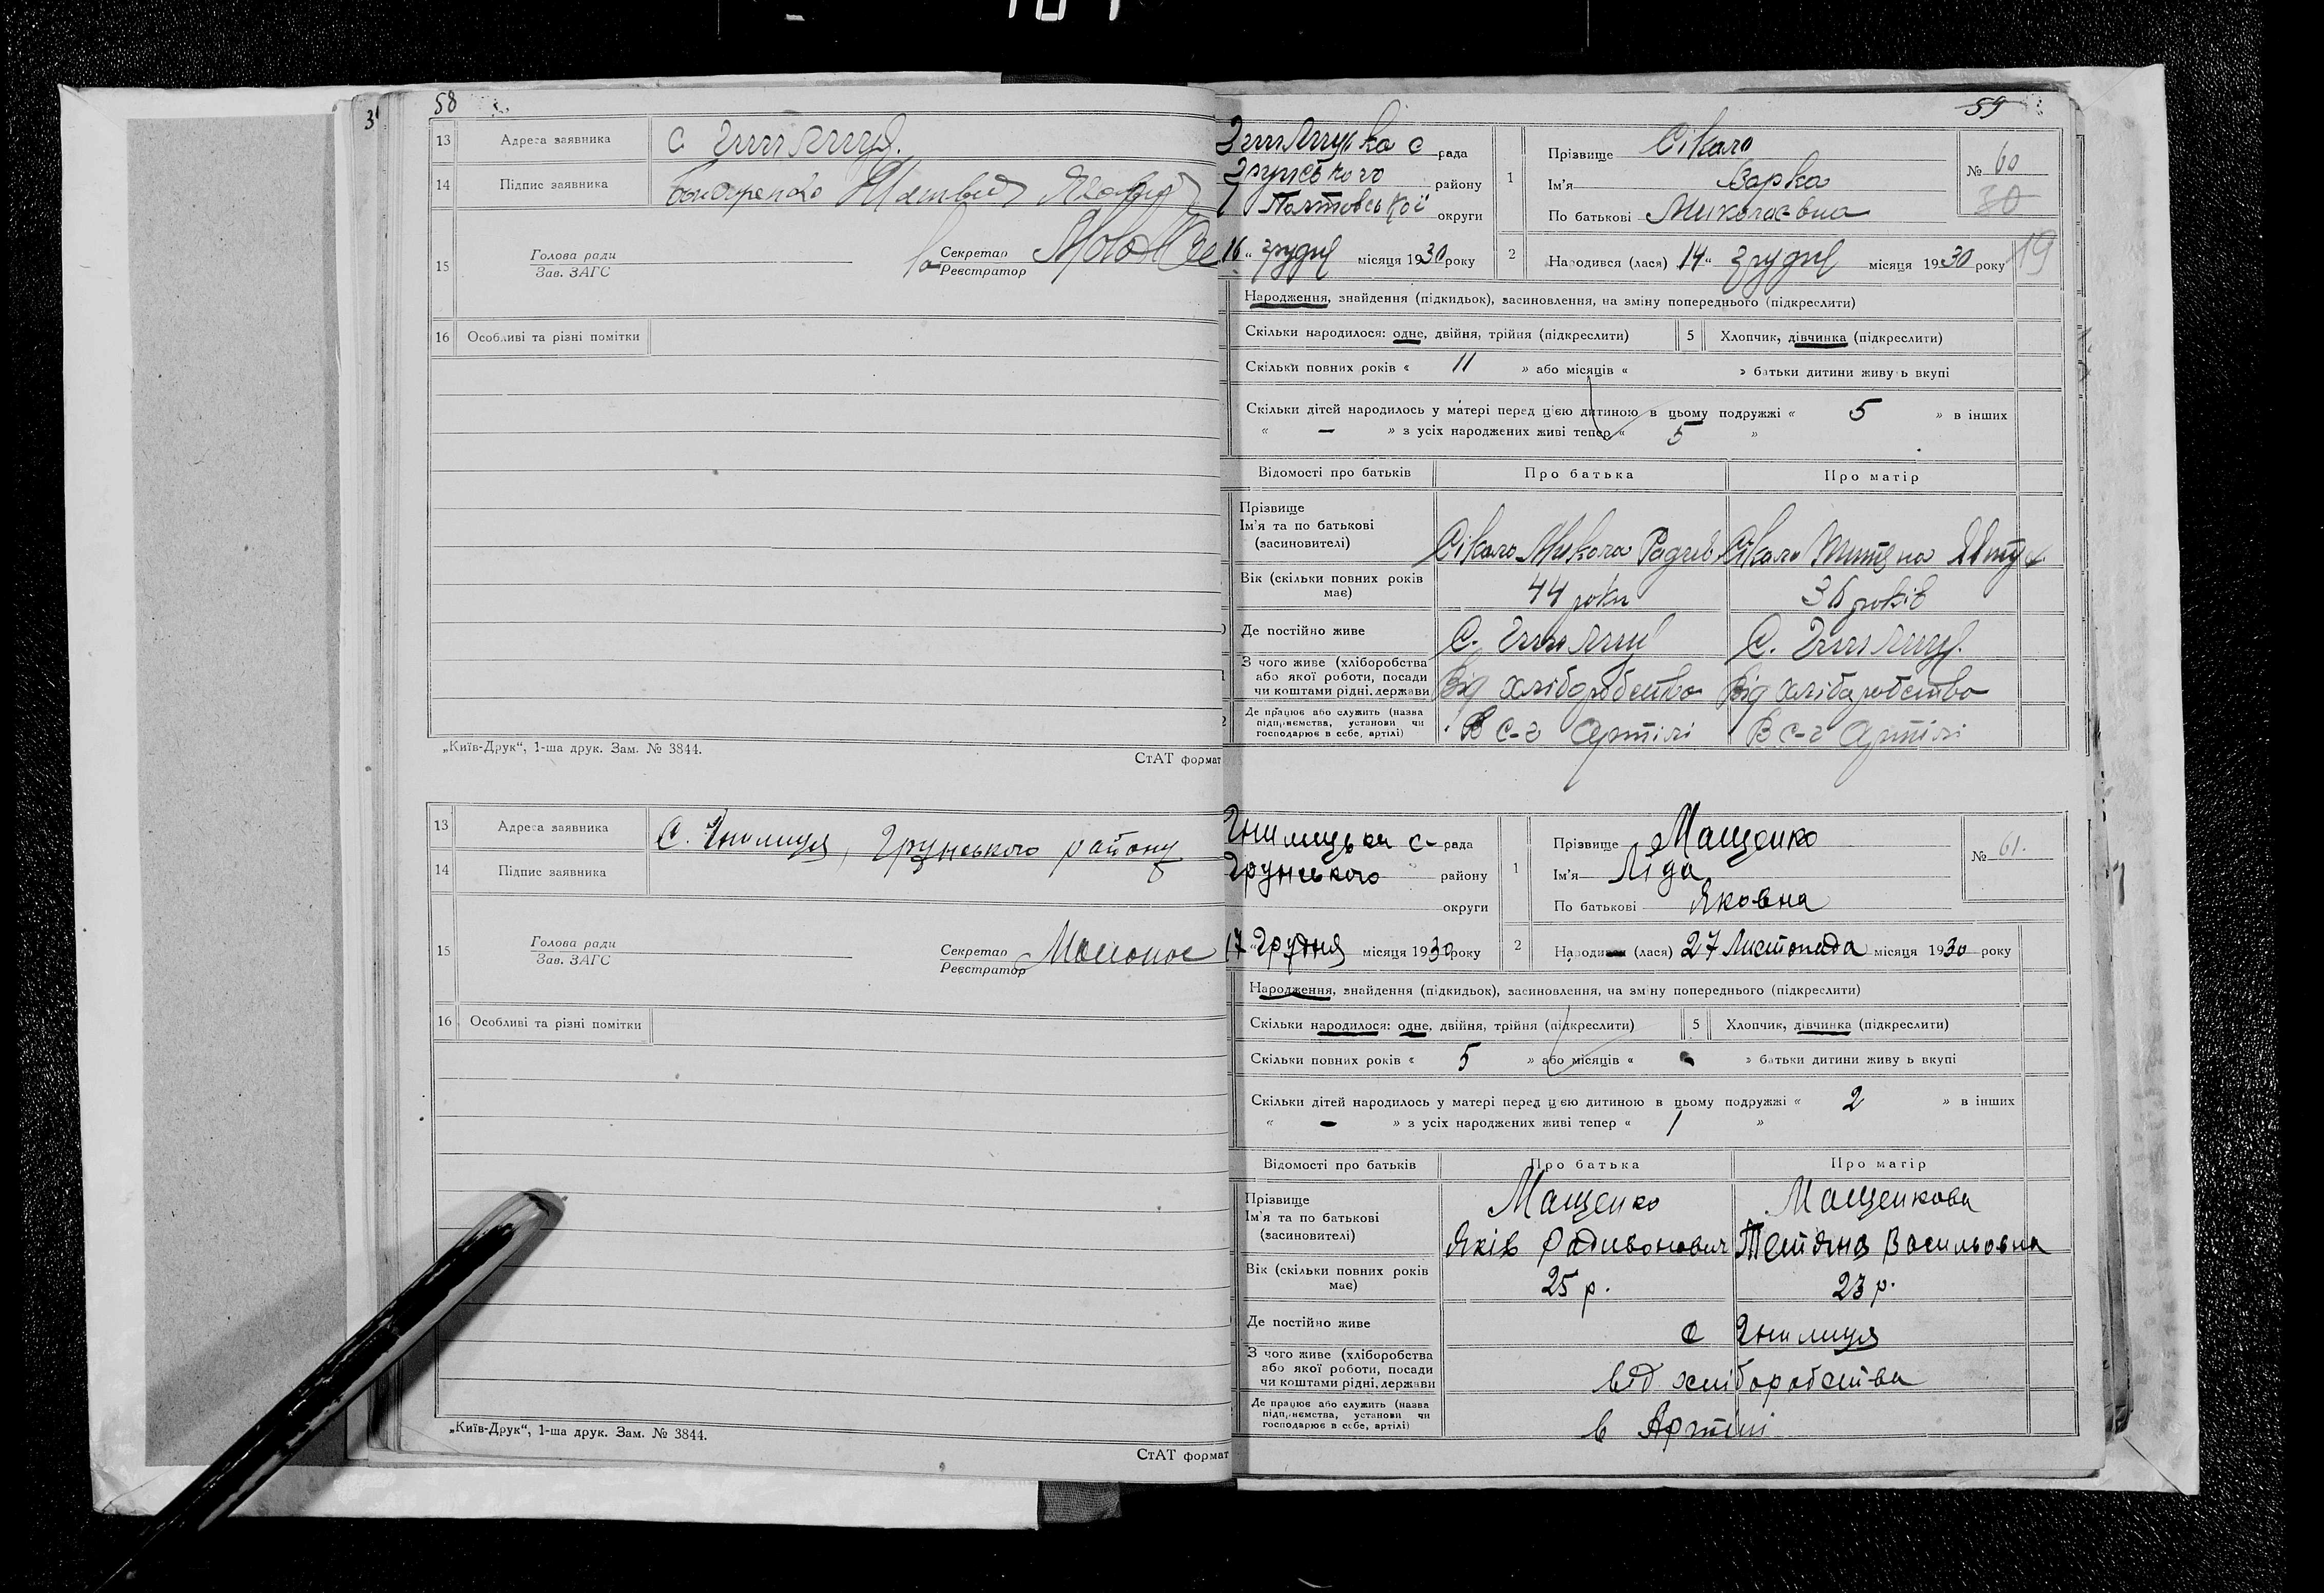 58
13 Адреса заявника с Гнилиця.
14 Підпис заявника
15 Голова ради
Зав. ЗАГС
Секретар
Реєстратор
16 Особливі та різні помітки
„Київ-Друк“, 1-ша друк. Зам. № 3844.
СтАТ формат
13 Адреса заявника С. Гнилиця, Грунського району
14 Підпис заявника
15 Голова ради
Зав. ЗАГС
Секретар
Реєстратор
16 Особливі та різні помітки
„Київ-Друк“, 1-ша друк. Зам. № 3844.
СтАТ формат
59
Гнилицька с рада
Грунського району
Полтавської округи
16 “ грудня місяця 1930 року
1 Прізвище Сікало
Ім'я Варка
По батькові Миколаєвна
№ 60
30
2 Народився (лася) 14 “ грудня місяця 1930 року
19
Народження, знайдення (підкидьок), засиновлення, на зміну попереднього (підкреслити)
Скільки народилося: одне, двійня, трійня (підкреслити) 5 Хлопчик, дівчинка (підкреслити)
Скільки повних років « 11 » або місяців « » батьки дитини живуть вкупі
Скільки дітей народилось у матері перед цією дитиною в цьому подружжі « 5 » в інших
« – » з усіх народжених живі тепер « 5 »
Відомості про батьків Про батька Про матір
Прізвище
Ім'я та по батькові
(засиновителі)
Сікало Микола Сікало
Вік (скільки повних років має) 44 роки 36 років
Де постійно живе С. Гнилиця С. Гнилиця.
З чого живе (хліборобства
або якої роботи, посади
чи коштами рідні, держави
Від хліборобства Від хліборобства
Де працює або служить (назва
підприємства, установи чи
господарює в себе, артілі)
В с-г Артілі В с-г Артілі
Гнилицька с- рада
Грунського району
округи
17 “ Грудня місяця 1930 року
1 Прізвище Мащенко
Ім'я Ліда
По батькові Яковна
№ 61.
2 Народився (лася) 27 Листопада місяця 1930 року
Народження, знайдення (підкидьок), засиновлення, на зміну попереднього (підкреслити)
Скільки народилося: одне, двійня, трійня (підкреслити) 5 Хлопчик, дівчинка (підкреслити)
Скільки повних років « 5 » або місяців « - » батьки дитини живуть вкупі
Скільки дітей народилось у матері перед цією дитиною в цьому подружжі « 2 » в інших
« – » з усіх народжених живі тепер « 1 »
Відомості про батьків Про батька Про матір
Прізвище
Ім'я та по батькові
(засиновителі)
Мащенко Мащенкова
Яків Радивонович Тетяна Васильовна
Вік (скільки повних років має) 25 р. 23 р.
Де постійно живе с Гнилиця
З чого живе (хліборобства
або якої роботи, посади
чи коштами рідні, держави
від хліборобства
Де працює або служить (назва
підприємства, установи чи
господарює в себе, артілі)
в Артілі